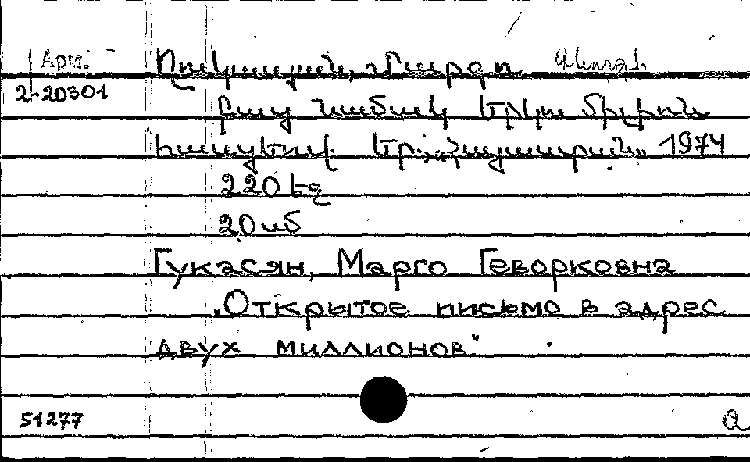 Арм.
2-20301
Ղուկասյան, Մարգո
Բաց նամակ երկու միլիոն
հասցեով. Եր., „Հայաստան„ 1974
220 եջ
20 ս/մ
Гукасян, Марго Геворковна
„Открытое письмо в адрес
двух миллионов."
51277